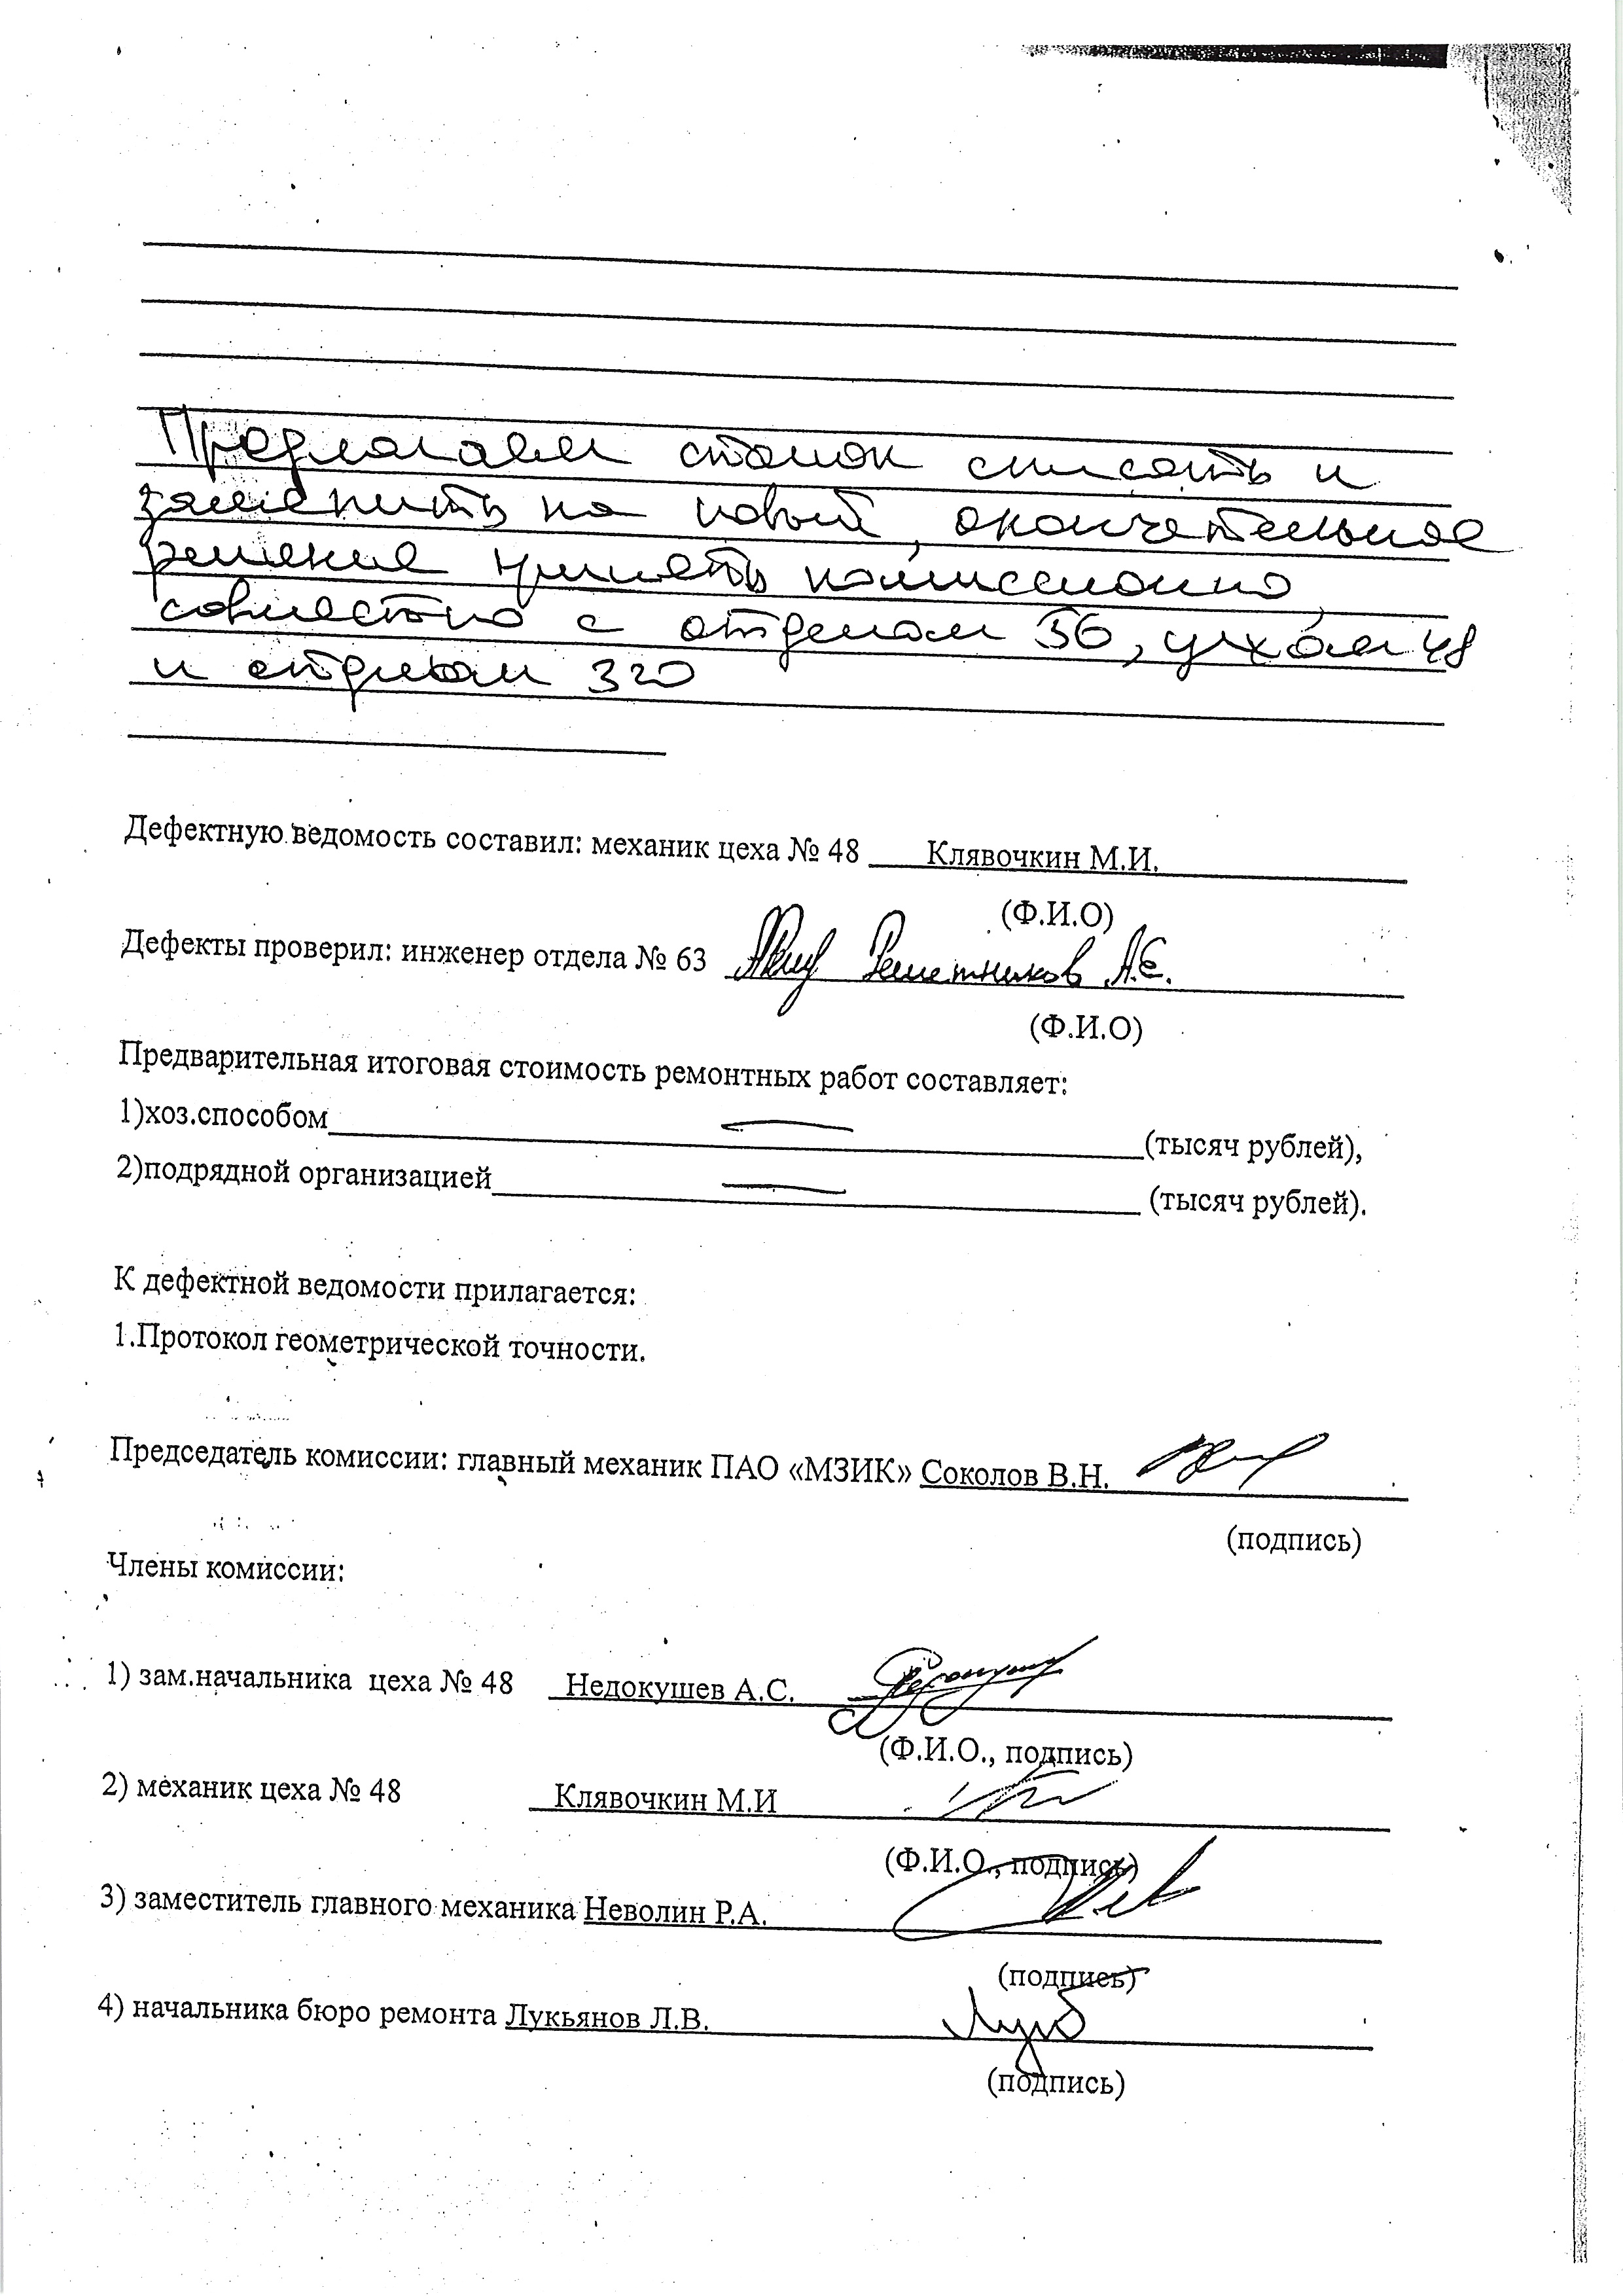 Предлагаем станок списать и
заменить на новый, окончательное
решение принять комиссионно,
совместно с отделом 36, цехом 48
и отделом 320
Дефектную ведомость составил: механик цеха № 48 Клявочкин М.И.
(Ф.И.О)
Дефекты проверил: инженер отдела № 63 Решетников А.Е.
(Ф.И.О)
Предварительная итоговая стоимость ремонтных работ составляет:
1)хоз.способом — (тысяч рублей),
2)подрядной организацией — (тысяч рублей).
К дефектной ведомости прилагается:
1.Протокол геометрической точности.
Председатель комиссии: главный механик ПАО «МЗИК» Соколов В.Н.
(подпись)
Члены комиссии:
1) зам.начальника цеха № 48 Недокушев А.С.
(Ф.И.О., подпись)
2) механик цеха № 48 Клявочкин М.И
(Ф.И.О., подпись)
3) заместитель главного механика Неволин Р.А.
(подпись)
4) начальника бюро ремонта Лукьянов Л.В.
(подпись)